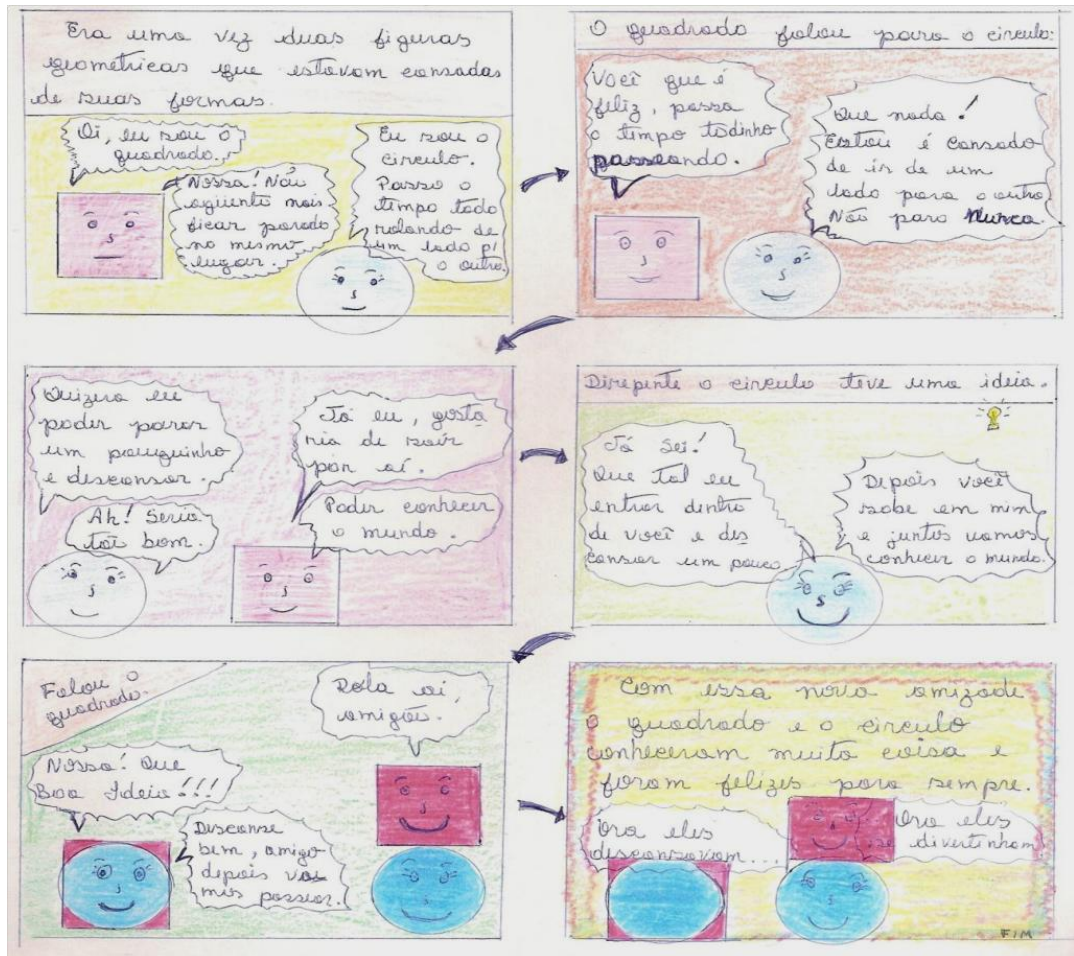 Era uma vez duas figuras
geométricas que estavam cansadas
de suas formas.
Oi, eu sou o
quadrado.
Nossa! Não
agüento mais
ficar parado
no mesmo
lugar.
Eu sou o
circulo.
Passo o
tempo todo
rolando de
um lado p/
o outro.
O quadrado falou para o circulo:
Você que é
feliz, passa
o tempo todinho
passeando.
Que nada!
Estou é cansado
de ir de um
lado para o outro
Não paro Nunca.
Quizera eu
poder parar
um pouquinho
e descansar.
Ah! Seria
tão bom.
Já eu, gosta
ria de sair
por aí.
Poder conhecer
o mundo.
Direpente o circulo teve uma ideia.
Já sei!
Que tal eu
entrar dentro
de você e des
cansar um pouco.
Depois você
sobe em mim
e juntos vamos
conhecer o mundo.
Falou o
quadrado.
Nossa! Que
Boa Ideia!!!
Descanse
bem, amigo
depois va
mos passear.
Rola aí,
amigão.
Com essa nova amizade
o quadrado e o circulo
conheceram muita coisa e
foram felizes para sempre.
Ora eles
descansavam...
Ora eles
se divertinham
FIM